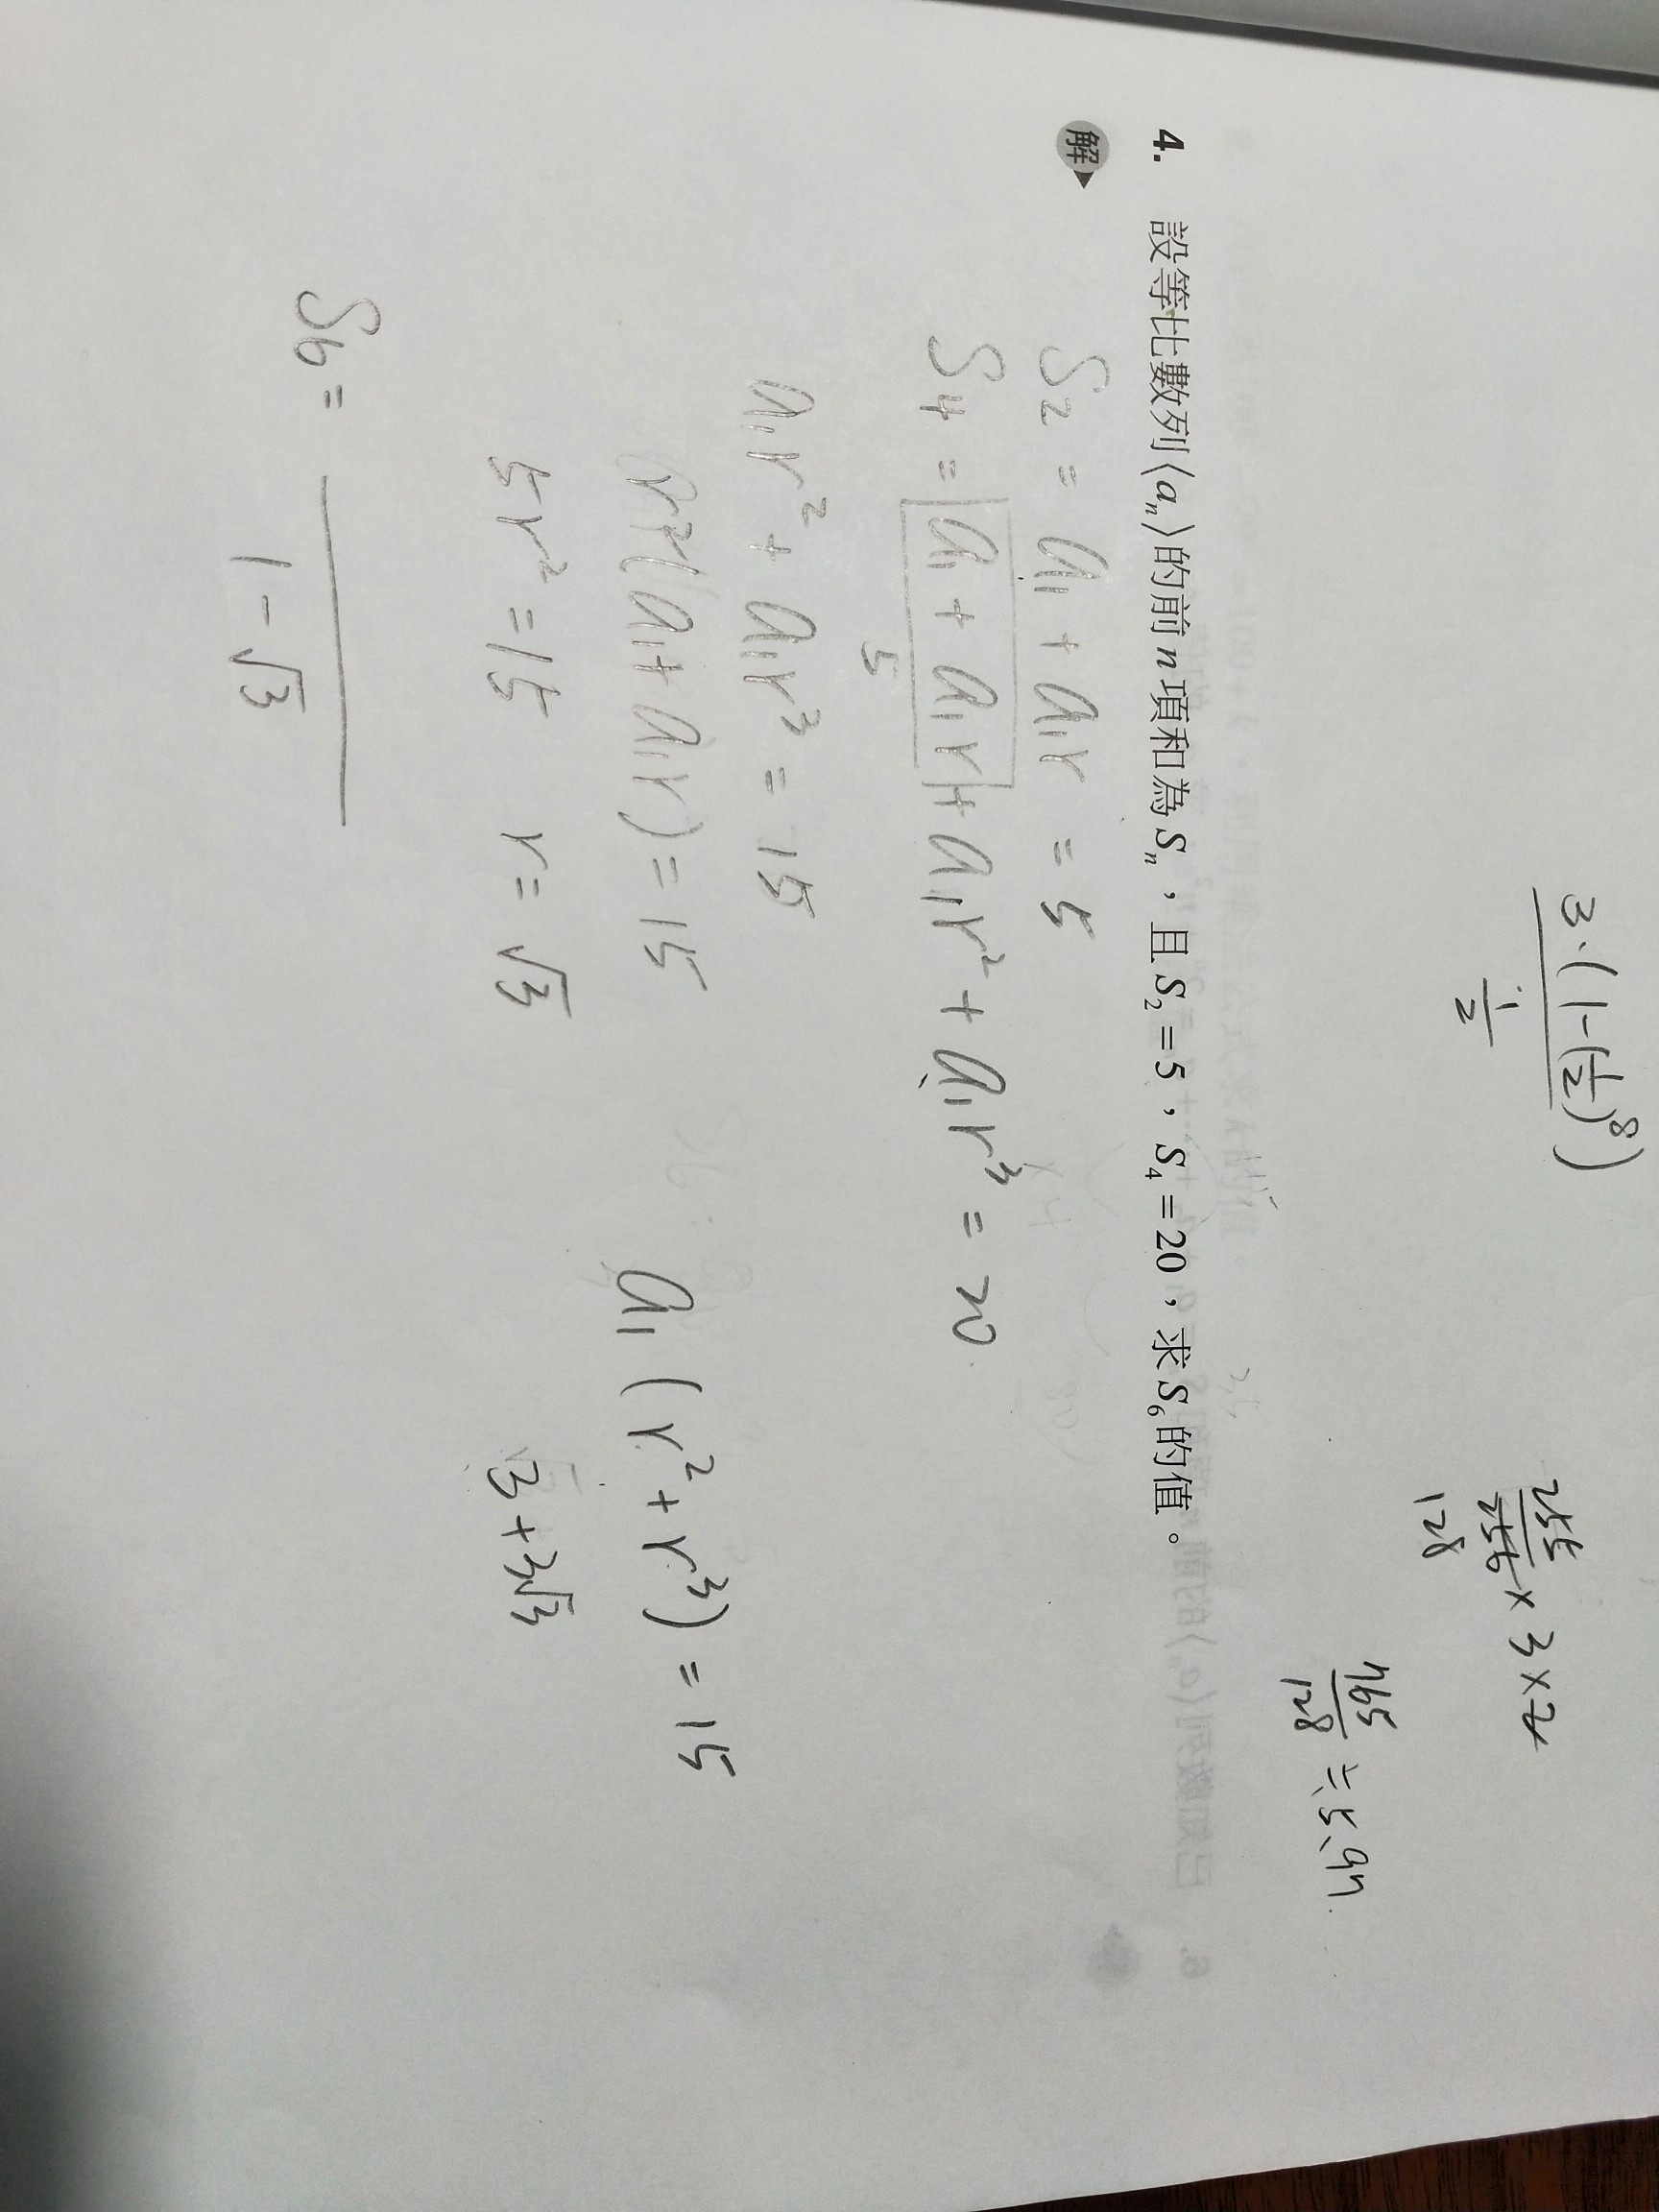 3·(1-(1/2)^8)
1/2
255/256 × 3 × 2
128
765/128 ≒ 5.97
4. 設等比數列⟨aₙ⟩的前 n 項和為 Sₙ，且 S₂=5，S₄=20，求 S₆ 的值。
解
S₂ = a₁ + a₁r = 5
S₄ = a₁ + a₁r + a₁r² + a₁r³ = 20
5
a₁r² + a₁r³ = 15
r²(a₁ + a₁r) = 15 a₁(r² + r³) = 15
5r² = 15 r = √3 3 + 3√3
S₆ =
1 - √3